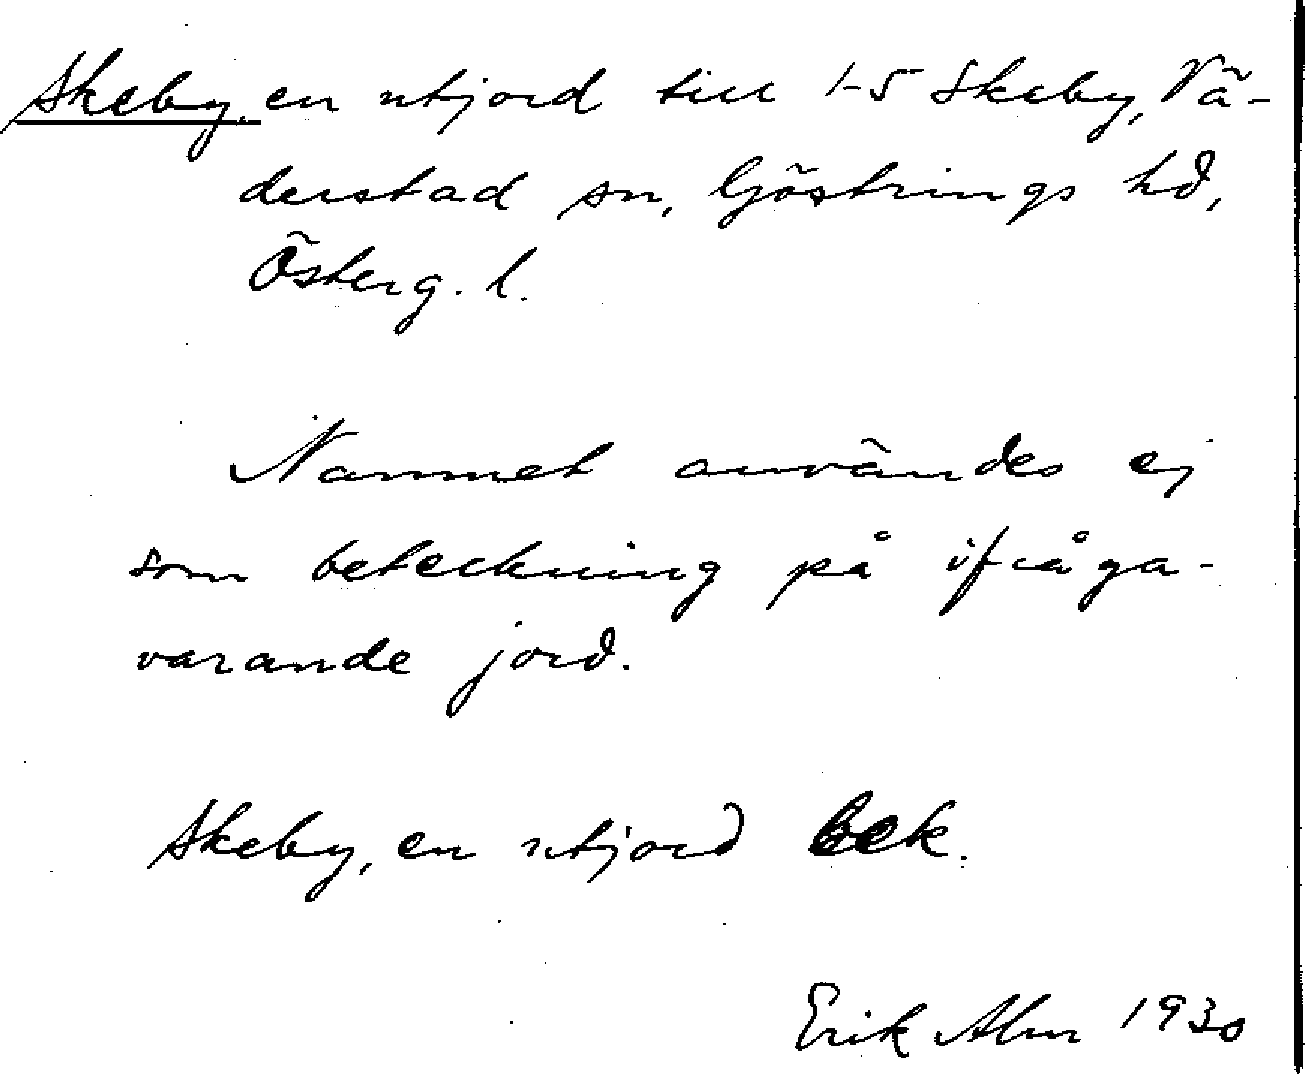 Skeby, en utjord till 1-5 Skeby, Vä-
derstad sn, Göstrings hd,
Österg. l.
Namnet användes ej
som beteckning på ifråga-
varande jord.
Skeby, en utjord Bek.
Erik Alm 1930